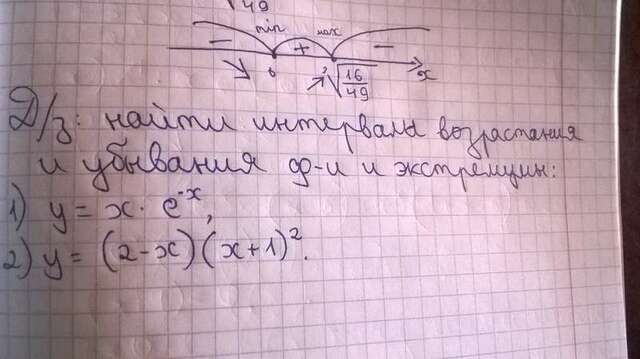 √49
min max
− + −
0 √16/49 x
Д/з: найти интервалы возрастания
и убывания ф-и и экстремум:
1) y = x · e^-x,
2) y = (2-x)(x+1)².